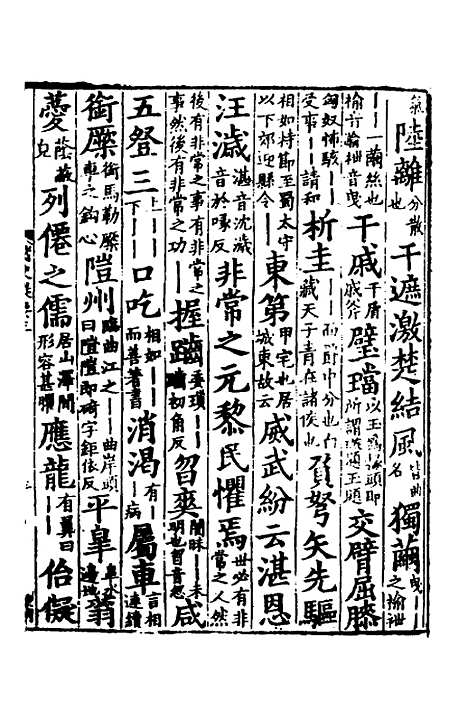 氣陸離分散也干遮激楚結風皆曲名獨繭曳——之褕袣
——一繭絲也褕音踰袣音曳干戚干盾戚斧璧璫以玉為椽頭即所謂璇題玉題交臂屈膝
匈奴怖駭——請和受事——析圭——而爵中分也白藏天子青在諸侯也負弩矢先驅
相如持節至蜀太守以下郊迎縣令——東第甲宅也居城東故云威武紛云湛恩
汪濊湛音沈濊音於喙反非常之元黎民懼焉世必有非常之人然
後有非常之事有非常之事然後有非常之功——握齪委瑣——初角反曶爽闇昧——未明也曶音忽咸
五登三上——下——口吃相如——而善著書消渴有——病屬車言相連續
銜橛銜馬勒橛車之鈎心隑州臨曲江之——曲岸頭曰隑隑即碕字鉅依反平皋皋水邊地翁
薆蔭蔽皃列僊之儒居山澤間形容甚臞應龍有翼曰——佁儗